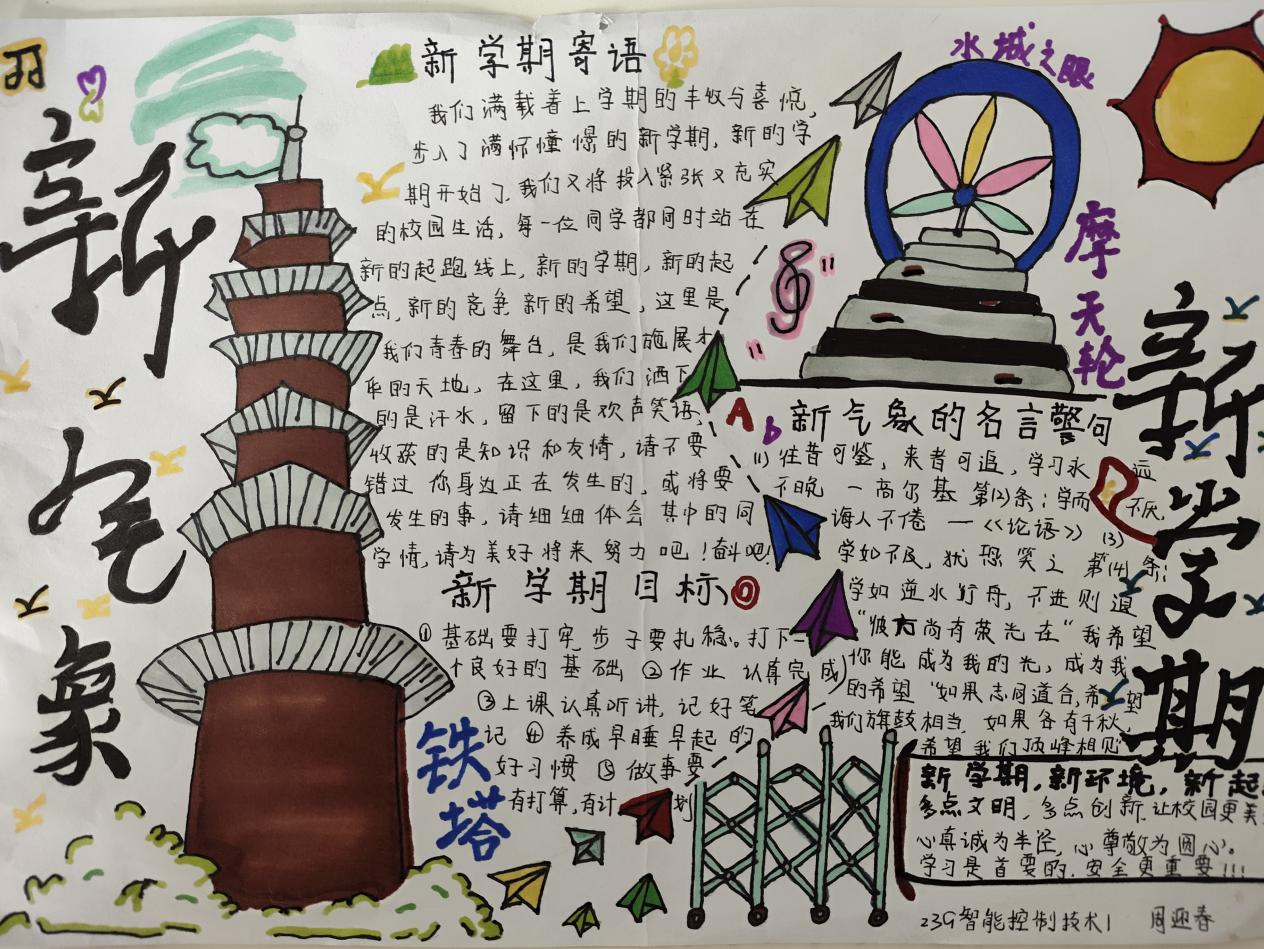 旺
新气象
新学期寄语
我们满载着上学期的丰收与喜悦,
步入了满怀憧憬的新学期,新的学
期开始了.我们又将投入紧张又充实
的校园生活,每一位同学都同时站在
新的起跑线上,新的学期,新的起
点,新的竞争 新的希望,这里是
我们青春的舞台,是我们施展才
华的天地,在这里,我们洒下
的是汗水,留下的是欢声笑语,
收获的是知识和友情,请不要
错过 你身边正在发生的,或将要
发生的事,请细细体会 其中的同
学情,请为美好将来努力吧!奋斗吧!
新学期目标
① 基础要打牢 步子要扎稳。打下一
个良好的 基础 ②作业 认真完成
③上课认真听讲,记好笔
记 ④ 养成早睡早起的
好习惯 ⑤ 做事要
有打算,有计划
铁塔
水城之眼
摩天轮
A b
新气象的名言警句
(1) 往昔可鉴,来者可追,学习永远
不晚 一高尔基 第(2)条:学而不厌,
诲人不倦 一《论语》 (3)
学如不及,犹恐笑之 第(4)条;
学如逆水行舟,不进则退
"彼方尚有荣光在"我希望
你能成为我的光,成为我
的希望 "如果志同道合,希望
我们旗鼓相当 如果各有千秋,
希望我们顶峰相见"
新学期
新学期,新环境,新起
多点文明,多点创新.让校园更美
心真诚为半径,心尊敬为圆心。
学习是首要的.安全更重要!!!
23G智能控制技术1 周迎春